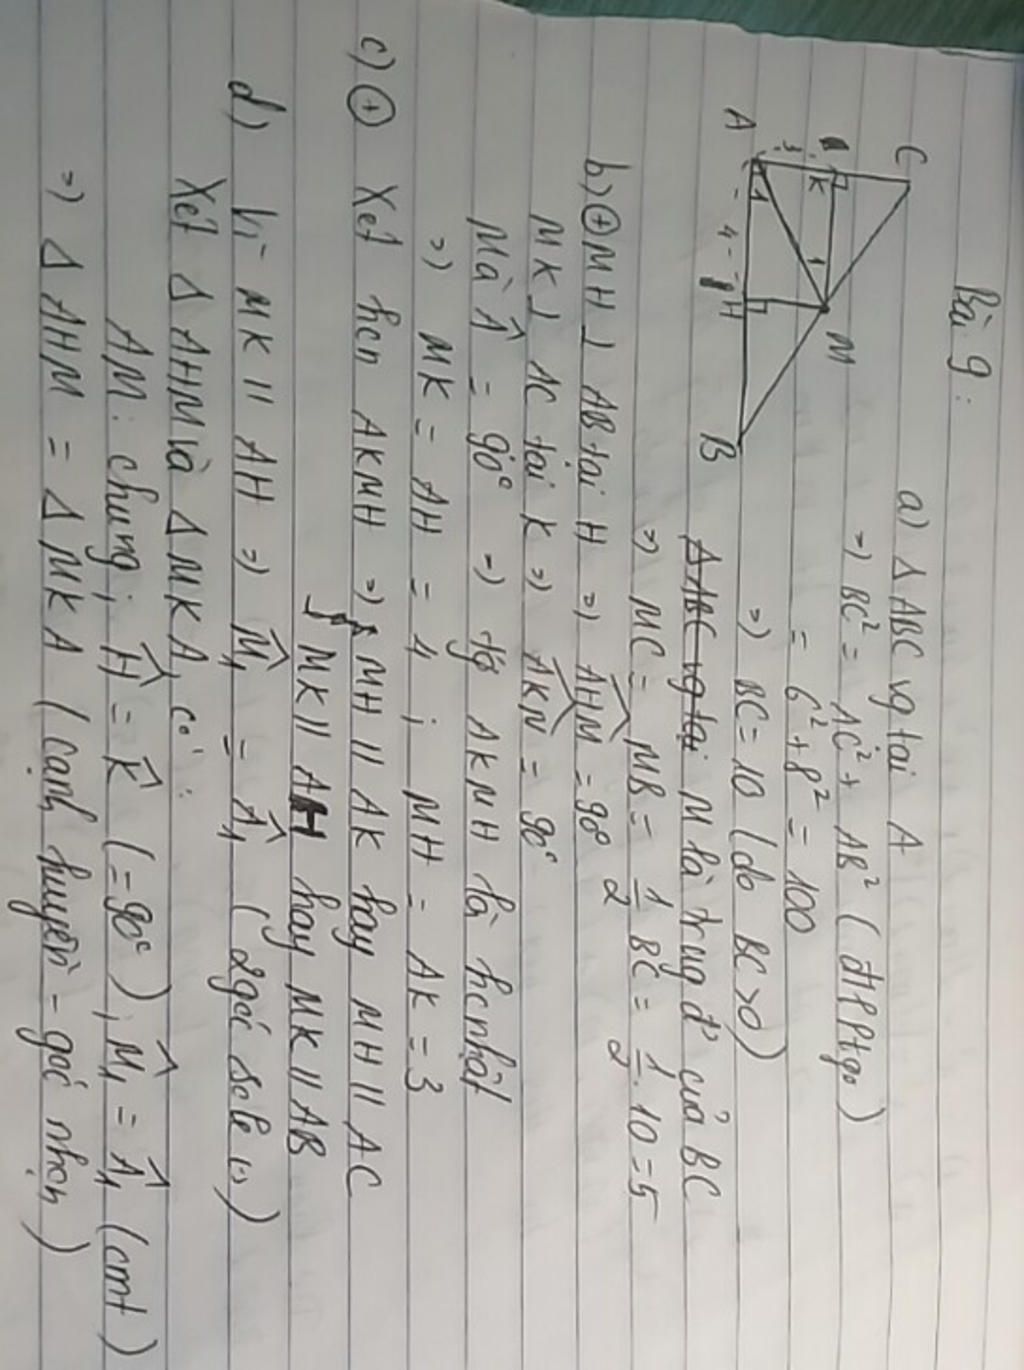 Bài 9:
C
K
M
3
1
A
1
4
H
B
a) Δ ABC vg tại A
=) BC² = AC² + AB² (đlPPtgo)
= 6² + 8² = 100
=) BC = 10 (do BC>0)
Δ ABC vg tại M là trug đ' của BC
=) MC = MB = 1/2 BC = 1/2 . 10 = 5
b) (+) MH ⊥ AB tại H =) AHM = 90°
MK ⊥ AC tại K =) AKM = 90°
Mà Â = 90° =) tg AKMH là hcnhật
=) MK = AH = 4 ; MH = AK = 3
c) (+) Xét hcn AKMH =) { MH // AK hay MH // AC
{ MK // AH hay MK // AB
d) Vì MK // AH =) M̂₁ = Â₁ (2 góc sole (-))
Xét Δ AHM và Δ MKA, có:
AM: chung; Ĥ = K̂ (= 90°); M̂₁ = Â₁ (cmt)
=) Δ AHM = Δ MKA (cạnh huyền - góc nhọn)